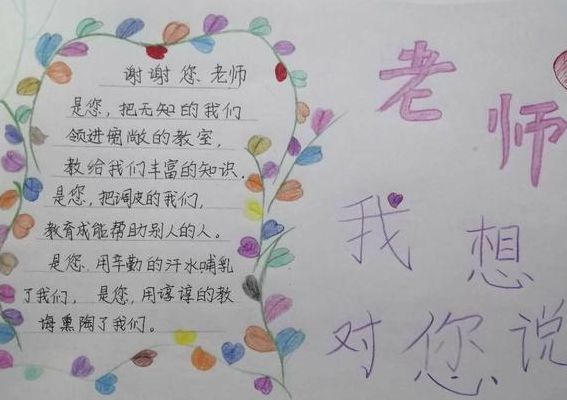 谢谢您老师
是您,把无知的我们
领进宽敞的教室,
教给我们丰富的知识.
是您,把调皮的我们,
教育成能帮助别人的人。
是您.用辛勤的汗水哺乳
了我们, 是您,用谆谆的教
诲熏陶了我们。
老师
我想
对您说